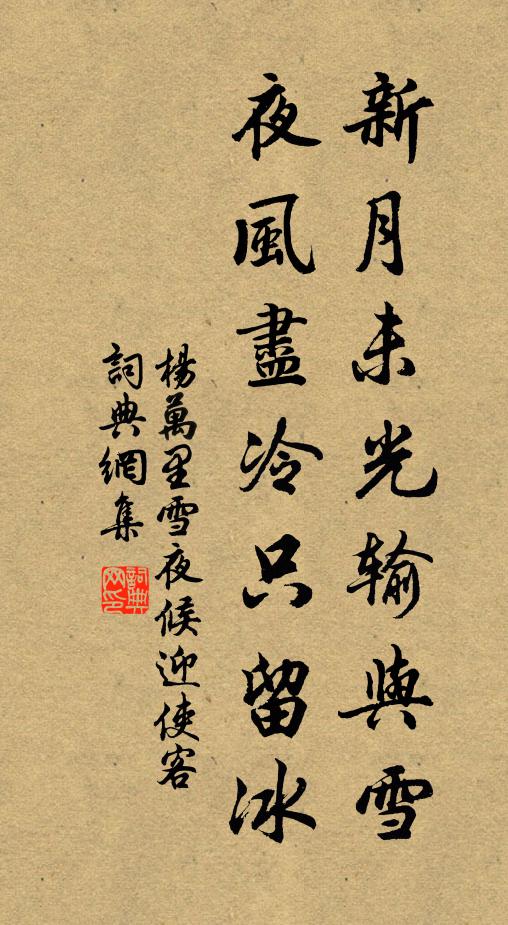 新月未光输與雪
夜風盡冷只留冰
楊萬里雪夜候迎使客
詞典網集
詞典網印